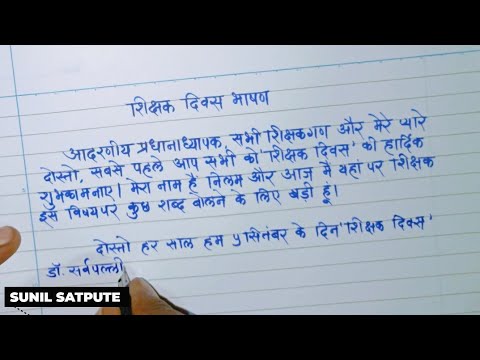 शिक्षक दिवस भाषण
आदरणीय प्रधानाध्यापक सभी शिक्षकगण और मेरे प्यारे
दोस्तो, सबसे पहले आप सभी को 'शिक्षक दिवस' की हार्दिक
शुभकामनाए। मेरा नाम है निलम और आज मै यहां पर शिक्षक
इस विषयपर कुछ शब्द बोलने के लिए बड़ी हूं।
दोस्तो हर साल हम 5 सितंबर के दिन 'शिक्षक दिवस'
डॉ. सर्वपल्ली
SUNIL SATPUTE